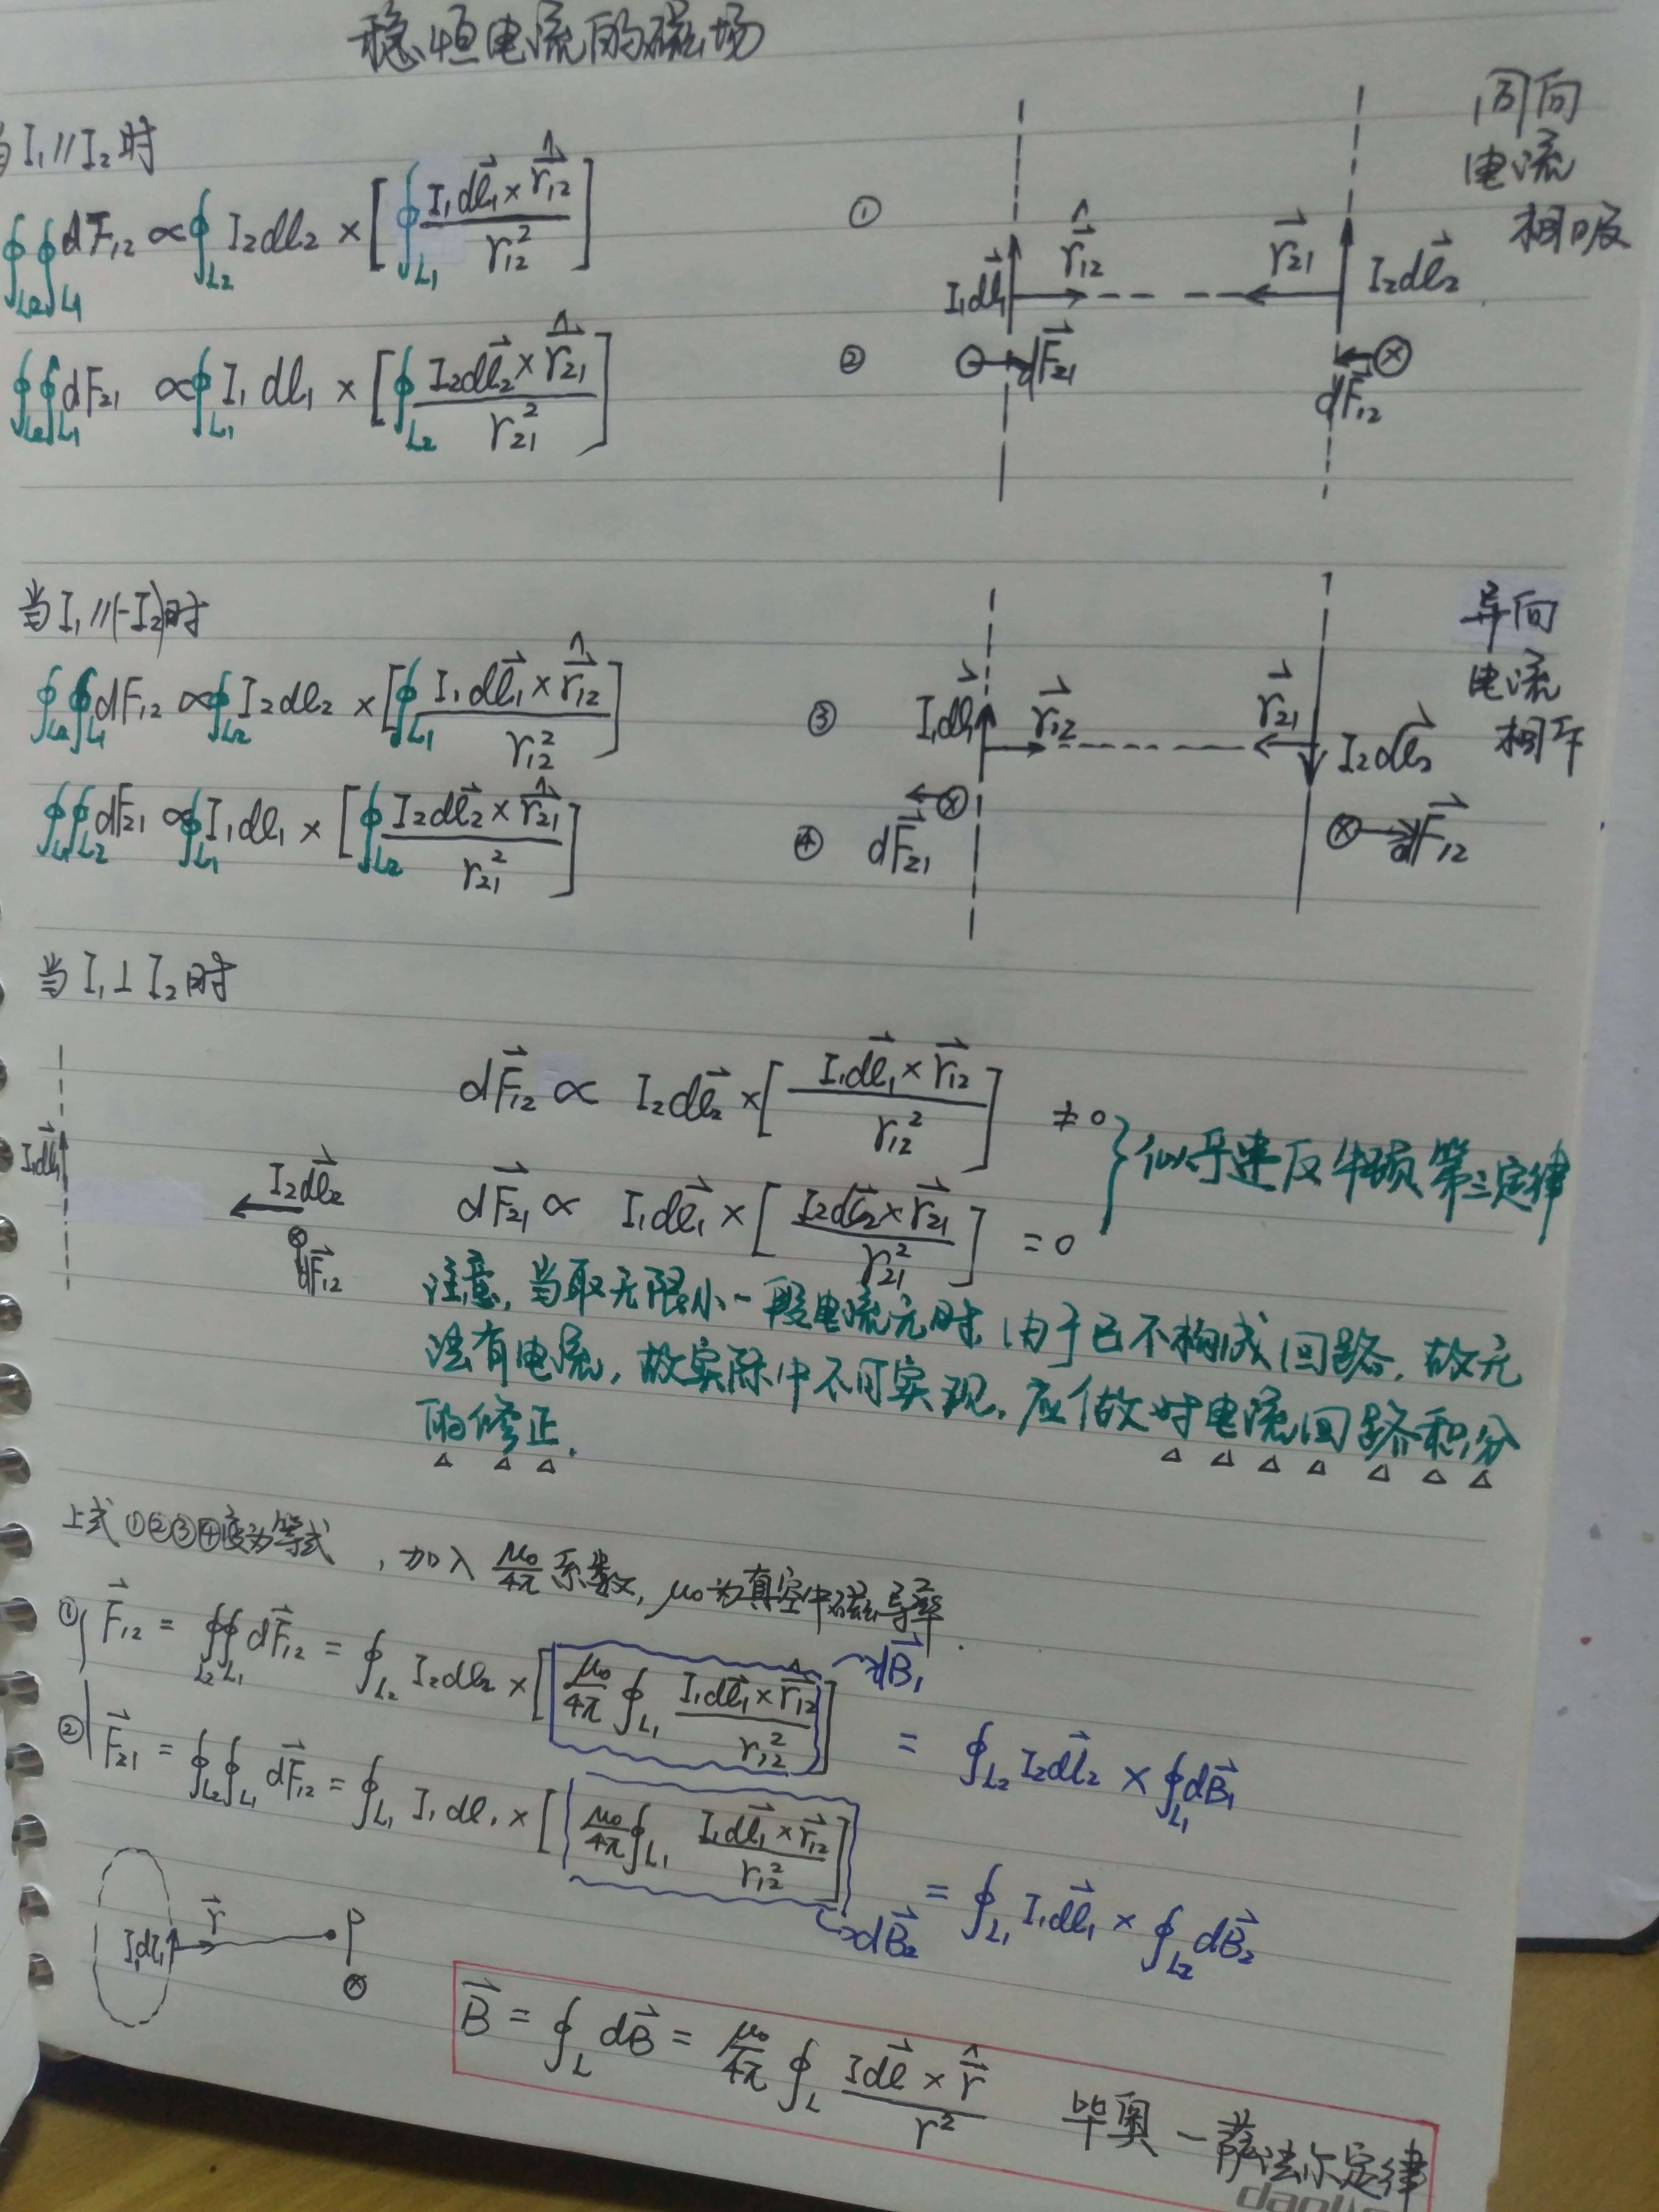 稳恒电流的磁场
当 I₁ // I₂ 时
∮_{L2}∮_{L1} dF₁₂ ∝ ∮_{L2} I₂dℓ₂ × [∮_{L1} I₁dℓ⃗₁ × r̂₁₂ / r₁₂²] ①
∮_{L2}∮_{L1} dF₂₁ ∝ ∮_{L1} I₁dℓ₁ × [∮_{L2} I₂dℓ⃗₂ × r̂₂₁ / r₂₁²] ②
I₁dℓ⃗₁ r̂₁₂ r⃗₂₁ I₂dℓ⃗₂
dF⃗₂₁ dF⃗₁₂
同向
电流
相吸
当 I₁ // (-I₂) 时
∮_{L2}∮_{L1} dF₁₂ ∝ ∮_{L2} I₂dℓ₂ × [∮_{L1} I₁dℓ⃗₁ × r̂₁₂ / r₁₂²] ③
∮_{L1}∮_{L2} dF₂₁ ∝ ∮_{L1} I₁dℓ₁ × [∮_{L2} I₂dℓ⃗₂ × r̂₂₁ / r₂₁²] ④
I₁dℓ⃗₁ r⃗₁₂ r⃗₂₁ I₂dℓ⃗₂
dF⃗₂₁ dF⃗₁₂
异向
电流
相斥
当 I₁ ⊥ I₂ 时
I₁dℓ⃗₁ I₂dℓ⃗₂
dF⃗₁₂
dF⃗₁₂ ∝ I₂dℓ⃗₂ × [I₁dℓ⃗₁ × r⃗₁₂ / r₁₂²] ≠ 0
dF⃗₂₁ ∝ I₁dℓ⃗₁ × [I₂dℓ⃗₂ × r⃗₂₁ / r₂₁²] = 0
} 似乎违反牛顿第三定律
注意,当取无限小一段电流元时,由于已不构成回路,故无
法有电流,故实际中不可实现,应做对电流回路积分
的修正.
上式①②③④变为等式,加入 μ₀/4π 系数,μ₀为真空中磁导率.
① F⃗₁₂ = ∮_{L2}∮_{L1} dF⃗₁₂ = ∮_{L2} I₂dℓ₂ × [μ₀/4π ∮_{L1} I₁dℓ⃗₁ × r̂₁₂ / r₁₂²] → dB⃗₁ = ∮_{L2} I₂dℓ⃗₂ × ∮_{L1} dB⃗₁
② F⃗₂₁ = ∮_{L2}∮_{L1} dF⃗₁₂ = ∮_{L1} I₁dℓ₁ × [μ₀/4π ∮_{L1} I₁dℓ⃗₁ × r⃗₁₂ / r₁₂²] → dB⃗₂ = ∮_{L1} I₁dℓ⃗₁ × ∮_{L2} dB⃗₂
I₁dℓ₁ r⃗ P
B⃗ = ∮_L dB⃗ = μ₀/4π ∮_L Idℓ⃗ × r̂ / r² 毕奥-萨法尔定律